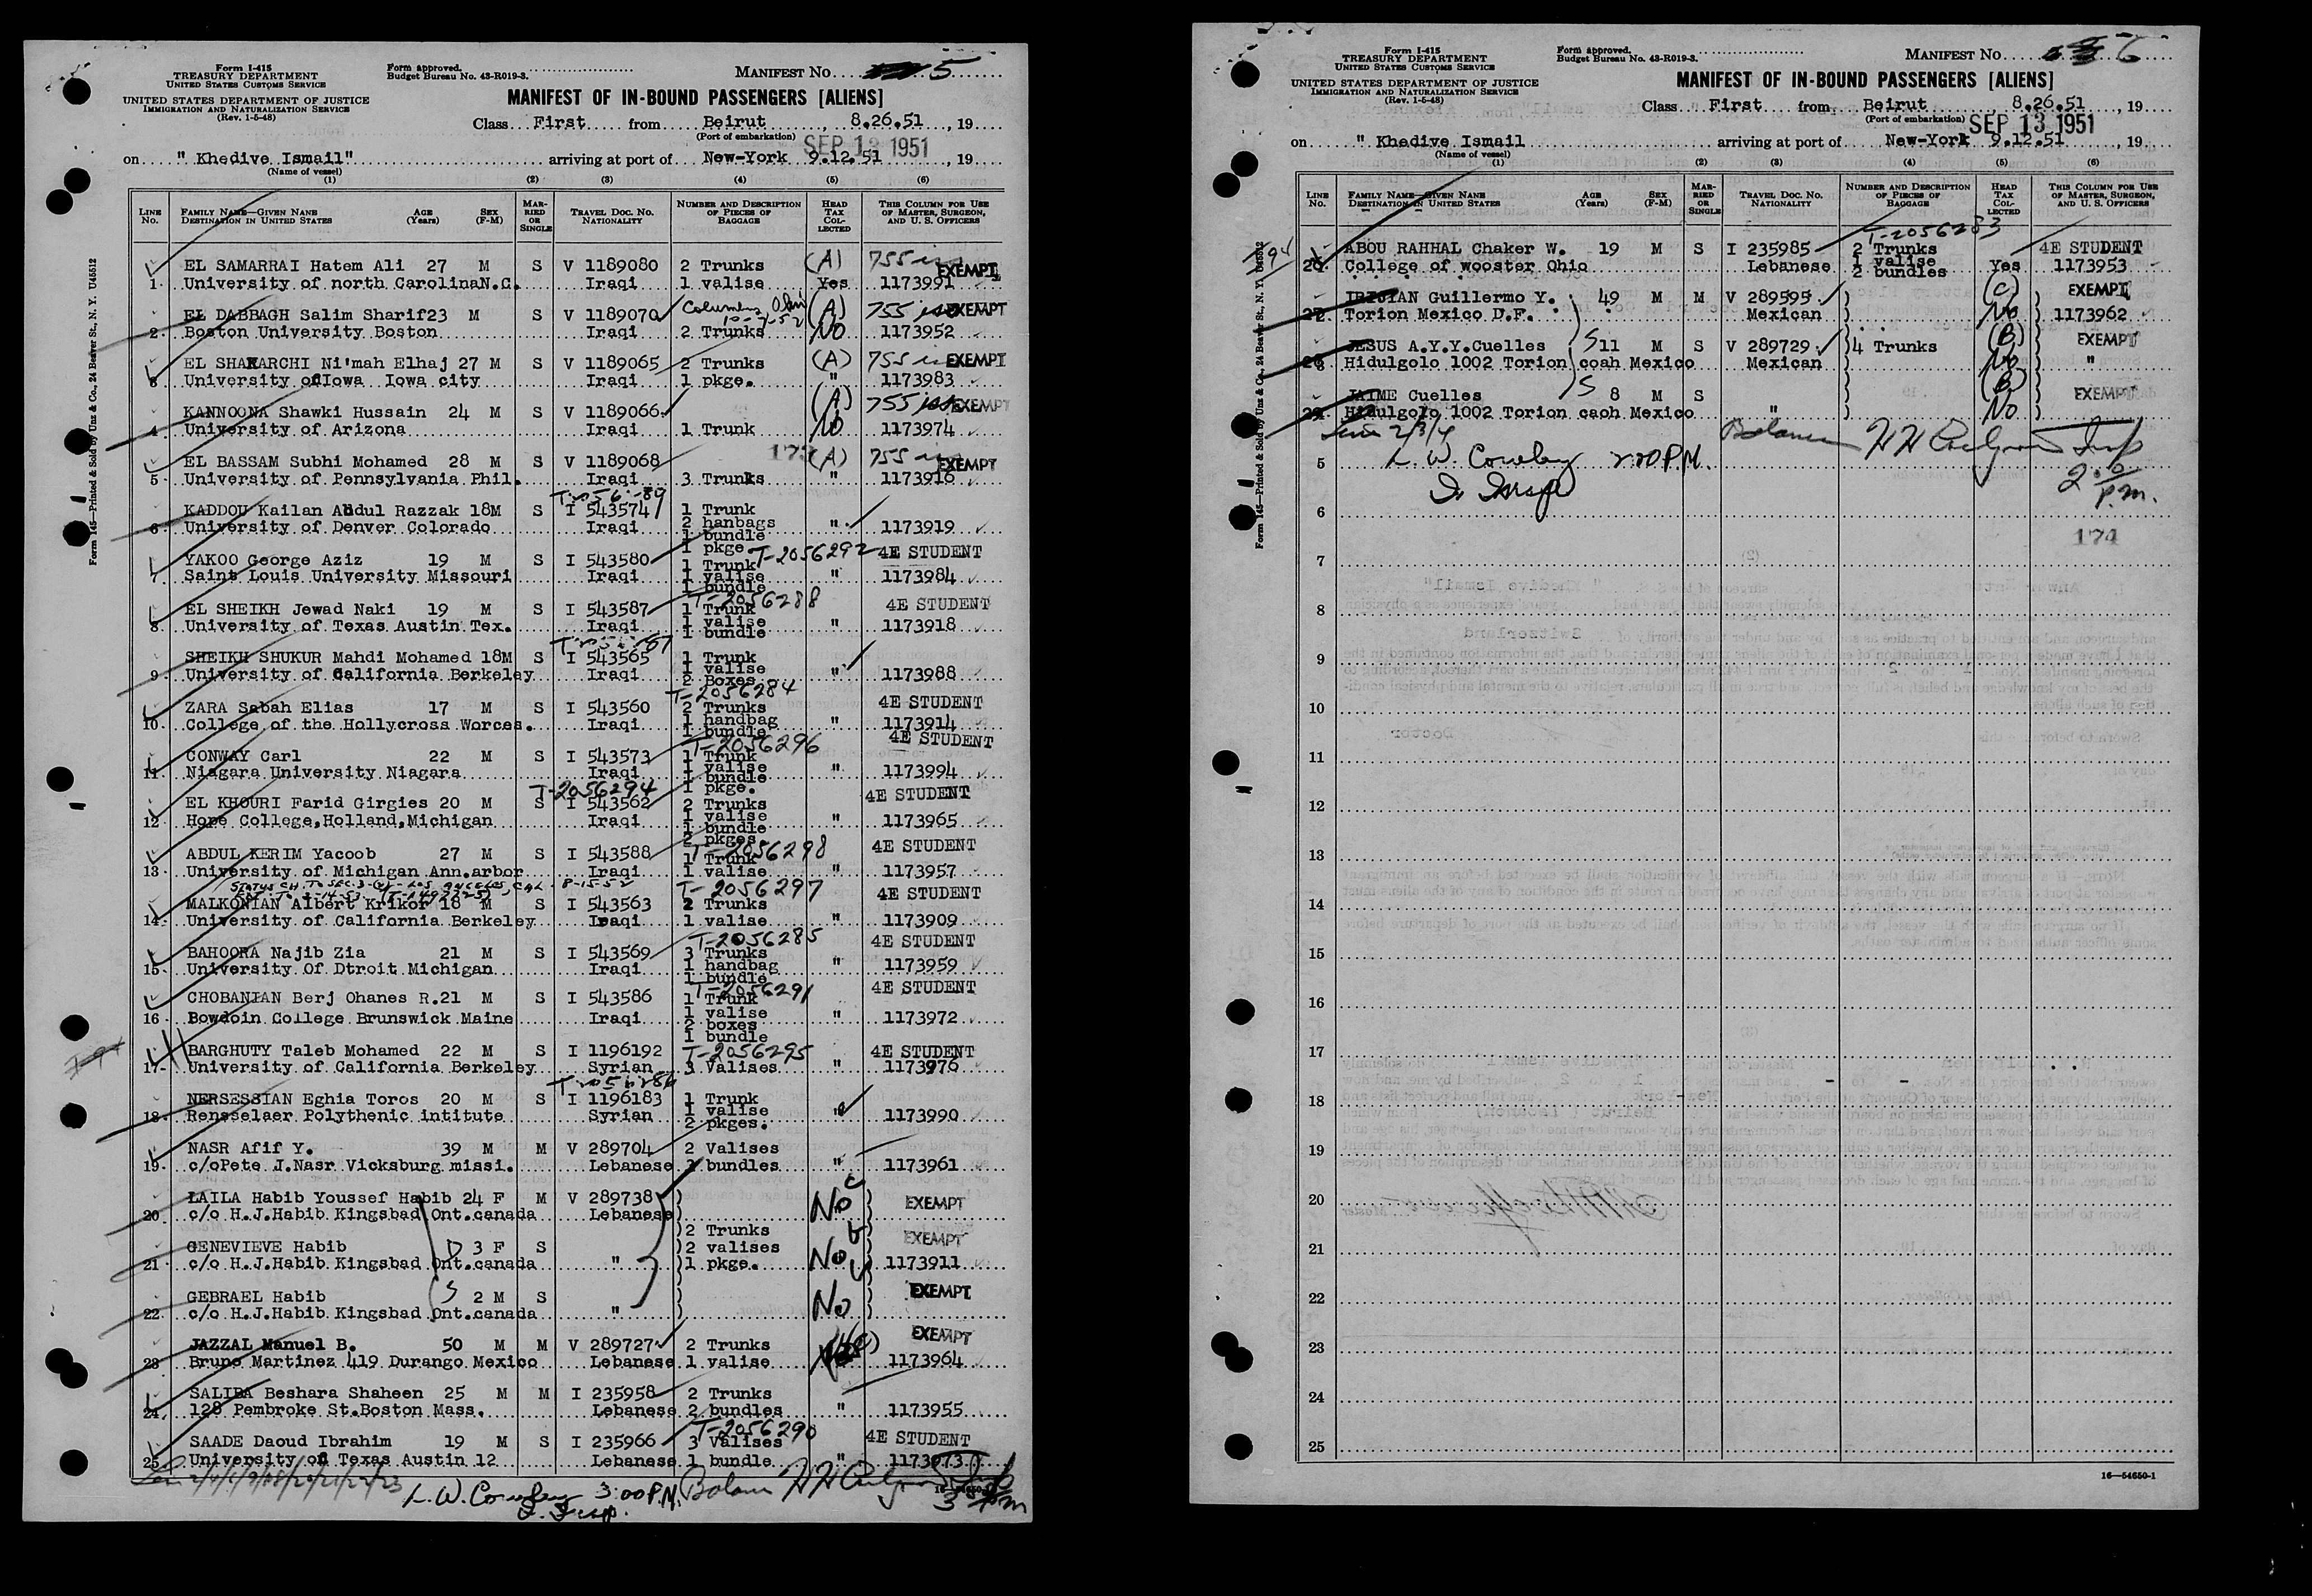 Form I-415
TREASURY DEPARTMENT
UNITED STATES CUSTOMS SERVICE
UNITED STATES DEPARTMENT OF JUSTICE
IMMIGRATION AND NATURALIZATION SERVICE
(Rev. 1-5-48)
Form approved.
Budget Bureau No. 43-R019-3.
MANIFEST NO. 5
MANIFEST OF IN-BOUND PASSENGERS [ALIENS]
Class First from Beirut, 8.26.51, 19
(Port of embarkation)
SEP 13 1951
on " Khedive Ismail" arriving at port of New-York 9.12.51, 19
(Name of vessel)
(1) (2) (3) (4) (5) (6)
LINE No. FAMILY NAME—GIVEN NAME DESTINATION IN UNITED STATES AGE (Years) SEX (F-M) MARRIED OR SINGLE TRAVEL DOC. NO. NATIONALITY NUMBER AND DESCRIPTION OF PIECES OF BAGGAGE HEAD TAX COLLECTED THIS COLUMN FOR USE OF MASTER, SURGEON, AND U. S. OFFICERS
EL SAMARRAI Hatem Ali 27 M S V 1189080 2 Trunks (A) 755 EXEMPT
1 University of north CarolinaN.C. Iraqi 1 valise Yes 1173991
EL DABBAGH Salim Sharif23 M S V 1189070 Columbus (A) 755 EXEMPT
2 Boston University Boston Iraqi 2 Trunks No 1173952
EL SHAKARCHI Ni'mah Elhaj 27 M S V 1189065 2 Trunks (A) 755 EXEMPT
3 University ofIowa Iowa city Iraqi 1 pkge. " 1173983
KANNOONA Shawki Hussain 24 M S V 1189066 (A) 755 EXEMPT
4 University of Arizona Iraqi 1 Trunk No 1173974
173
EL BASSAM Subhi Mohamed 28 M S V 1189068 (A) 755 EXEMPT
5 University of Pennsylvania Phil. Iraqi 3 Trunks " 1173916
KADDOU Kailan Abdul Razzak 18M S I 543574 1 Trunk
6 University of Denver Colorado Iraqi 2 hanbags " 1173919
1 bundle
1 pkge. T-2056292 4E STUDENT
YAKOO George Aziz 19 M S I 543580 1 Trunk
7 Saint Louis University Missouri Iraqi 1 valise " 1173984
1 bundle
T-2056288
EL SHEIKH Jewad Naki 19 M S I 543587 1 Trunk 4E STUDENT
8 University of Texas Austin Tex. Iraqi 1 valise " 1173918
1 bundle
SHEIKH SHUKUR Mahdi Mohamed 18M S I 543565 1 Trunk
9 University of California Berkeley Iraqi 1 valise " 1173988
2 Boxes
T-2056284
ZARA Sabah Elias 17 M S I 543560 2 Trunks 4E STUDENT
10 College of the Hollycross Worces. Iraqi 1 handbag " 1173914
1 bundle
T-2056296 4E STUDENT
CONWAY Carl 22 M S I 543573 1 Trunk
11 Niagara University Niagara Iraqi 1 valise " 1173994
1 bundle
T-2056294 1 pkge.
EL KHOURI Farid Girgies 20 M S I 543562 2 Trunks 4E STUDENT
12 Hope College,Holland,Michigan Iraqi 1 valise " 1173965
1 bundle
2 pkges
T-2056298
ABDUL KERIM Yacoob 27 M S I 543588 1 Trunk 4E STUDENT
13 University of Michigan Ann.arbor Iraqi 1 valise " 1173957
8-15-52
T-2056297 4E STUDENT
MALKONIAN Albert Krikor 18 M S I 543563 2 Trunks
14 University of California Berkeley Iraqi 1 valise " 1173909
T-2056285 4E STUDENT
BAHOORA Najib Zia 21 M S I 543569 3 Trunks
15 University Of Dtroit Michigan Iraqi 1 handbag " 1173959
1 bundle
T-2056291 4E STUDENT
CHOBANIAN Berj Ohanes R.21 M S I 543586 1 Trunk
16 Bowdoin College Brunswick Maine Iraqi 1 valise " 1173972
2 boxes
1 bundle
BARGHUTY Taleb Mohamed 22 M S I 1196192 T-2056295 4E STUDENT
17 University of California Berkeley Syrian 3 Valises " 1173976
NERSESSIAN Eghia Toros 20 M S I 1196183 1 Trunk
18 Rensselaer Polythenic intitute Syrian 1 valise " 1173990
2 pkges.
NASR Afif Y. 39 M M V 289704 2 Valises
19 c/oPete J.Nasr Vicksburg missi. Lebanese bundles " 1173961
LAILA Habib Youssef Habib 24 F M V 289738 No EXEMPT
20 c/o H.J.Habib Kingsbad Ont.canada Lebanese
2 Trunks
GENEVIEVE Habib D 3 F S 2 valises EXEMPT
21 c/o H.J.Habib Kingsbad Ont.canada " 1 pkge. No 1173911
GEBRAEL Habib S 2 M S EXEMPT
22 c/o H.J.Habib Kingsbad Ont.canada " No
JAZZAL Manuel B. 50 M M V 289727 2 Trunks EXEMPT
23 Bruno Martinez 419 Durango Mexico Lebanese 1 valise 1173964
SALIBA Beshara Shaheen 25 M M I 235958 2 Trunks
24 128 Pembroke St.Boston Mass. Lebanese 2 bundles " 1173955
T-2056290
SAADE Daoud Ibrahim 19 M S I 235966 3 Valises 4E STUDENT
25 University of Texas Austin 12 Lebanese 1 bundle " 1173973
3:00 P.M.
Form 145—Printed & Sold by Unz & Co., 24 Beaver St., N. Y. U45512
Form I-415
TREASURY DEPARTMENT
UNITED STATES CUSTOMS SERVICE
UNITED STATES DEPARTMENT OF JUSTICE
IMMIGRATION AND NATURALIZATION SERVICE
(Rev. 1-5-48)
Form approved.
Budget Bureau No. 43-R019-3.
MANIFEST NO. 6
MANIFEST OF IN-BOUND PASSENGERS [ALIENS]
Class First from Beirut 8.26.51, 19
(Port of embarkation)
SEP 13 1951
on " Khedive Ismail arriving at port of New-York 9.12.51, 19
(Name of vessel)
(1) (2) (3) (4) (5) (6)
LINE No. FAMILY NAME—GIVEN NAME DESTINATION IN UNITED STATES AGE (Years) SEX (F-M) MARRIED OR SINGLE TRAVEL DOC. NO. NATIONALITY NUMBER AND DESCRIPTION OF PIECES OF BAGGAGE HEAD TAX COLLECTED THIS COLUMN FOR USE OF MASTER, SURGEON, AND U. S. OFFICERS
T-2056283
ABOU RAHHAL Chaker W. 19 M S I 235985 2 Trunks 4E STUDENT
26 College of wooster Ohio Lebanese 1 valise Yes 1173953
2 bundles
IRIJIAN Guillermo Y. 49 M M V 289595 (C) EXEMPT
27 Torion Mexico D.F. Mexican No 1173962
JESUS A.Y.Y.Cuelles S 11 M S V 289729 4 Trunks (B) EXEMPT
28 Hidulgolo 1002 Torion coah Mexico Mexican No "
JAIME Cuelles S 8 M S (B) EXEMPT
29 Hidulgolo 1002 Torion caoh Mexico " No
5
2:00 P.M.
6
174
7
8
9
10
11
12
13
14
15
16
17
18
19
20
21
22
23
24
25
16—54650-1
Form 145—Printed & Sold by Unz & Co., 24 Beaver St., N. Y. U45512